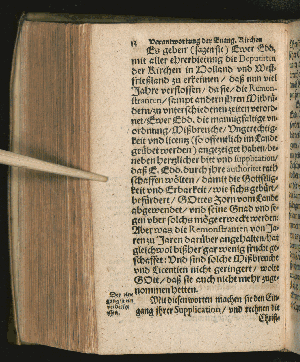 12 Verantwortung der Euang. Kirchen
Es geben (sagen sie) Ewer Edd.
mit aller ehrerbietung die Deputirten
der Kirchen in Holland vnd West-
frießland zu erkennen / daß nun viel
Jahre verflossen / da sie / die Remon-
stranten / sampt andern jhren Mitbrü-
dern / zu vnterschiedenen zeiten verord-
net / Ewer Edd. die mannigfaltige vn-
ordnung / Mißbreuche / Ungerechtig-
keit vnd licentz (so offentlich im Lande
geübet werden) angezeiget haben / be-
neben hertzlicher bitt vnd supplication /
daß E. Edd. durch jhre authoritet rath
schaffen wolten / damit die Gottselig-
keit vnd Erbarkeit / wie sichs gebürt /
befürdert / GOttes Zorn vom Lande
abgewendet / vnd seine Gnad vnd se-
gen vber solchs möge erweckt werden:
Aber was die Remonstranten von Ja-
ren zu Jaren darüber angehalten / hat
gleichwol bißher gar wenig frucht ge-
schaffet: Vnd sind solche Mißbreuche
vnd Licentien nicht geringert / wolte
GOtt / daß sie auch nicht mehr zuge-
nommen hetten.
Mit diesen worten machen sie den Ein-
gang jhrer Supplication / vnd rechnen die
Christe